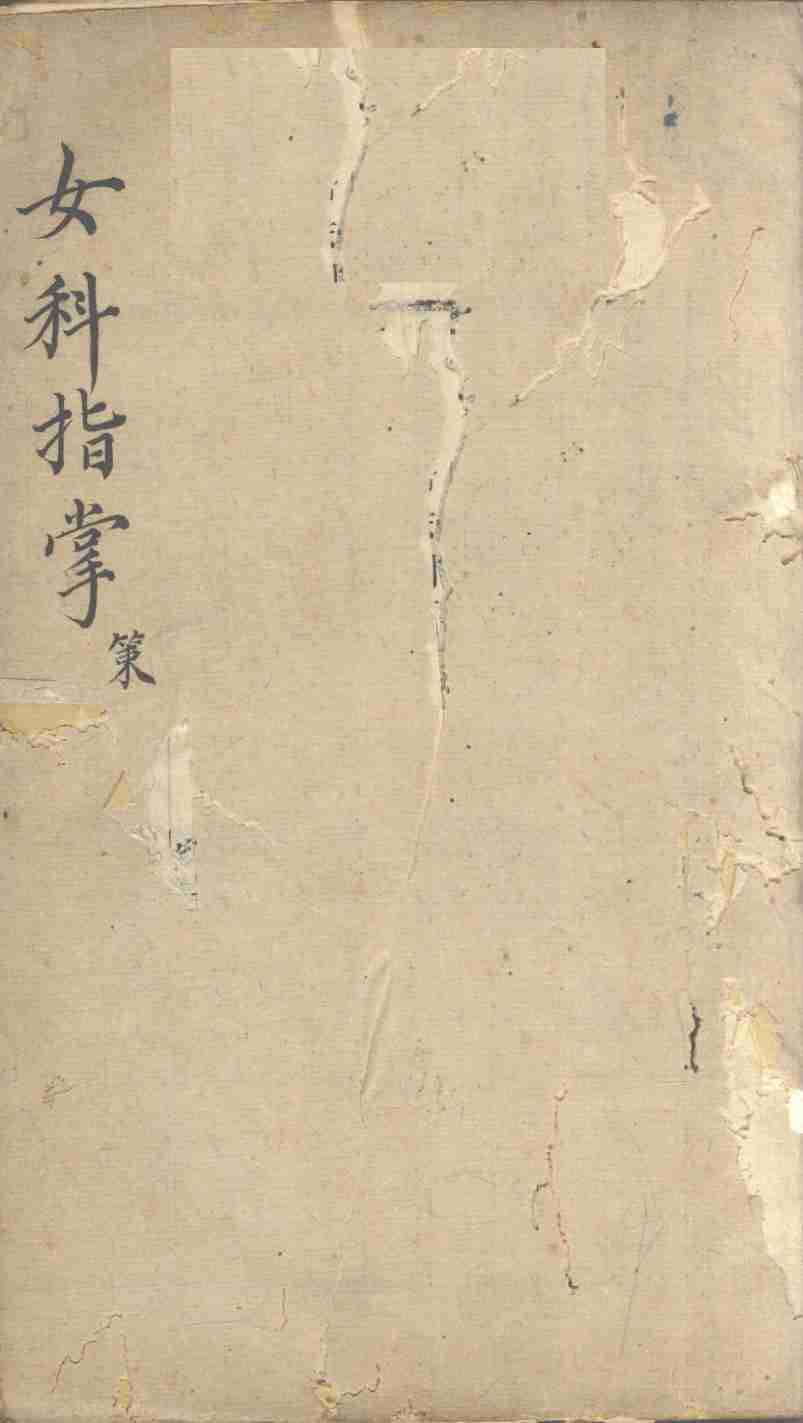 女科指掌
策